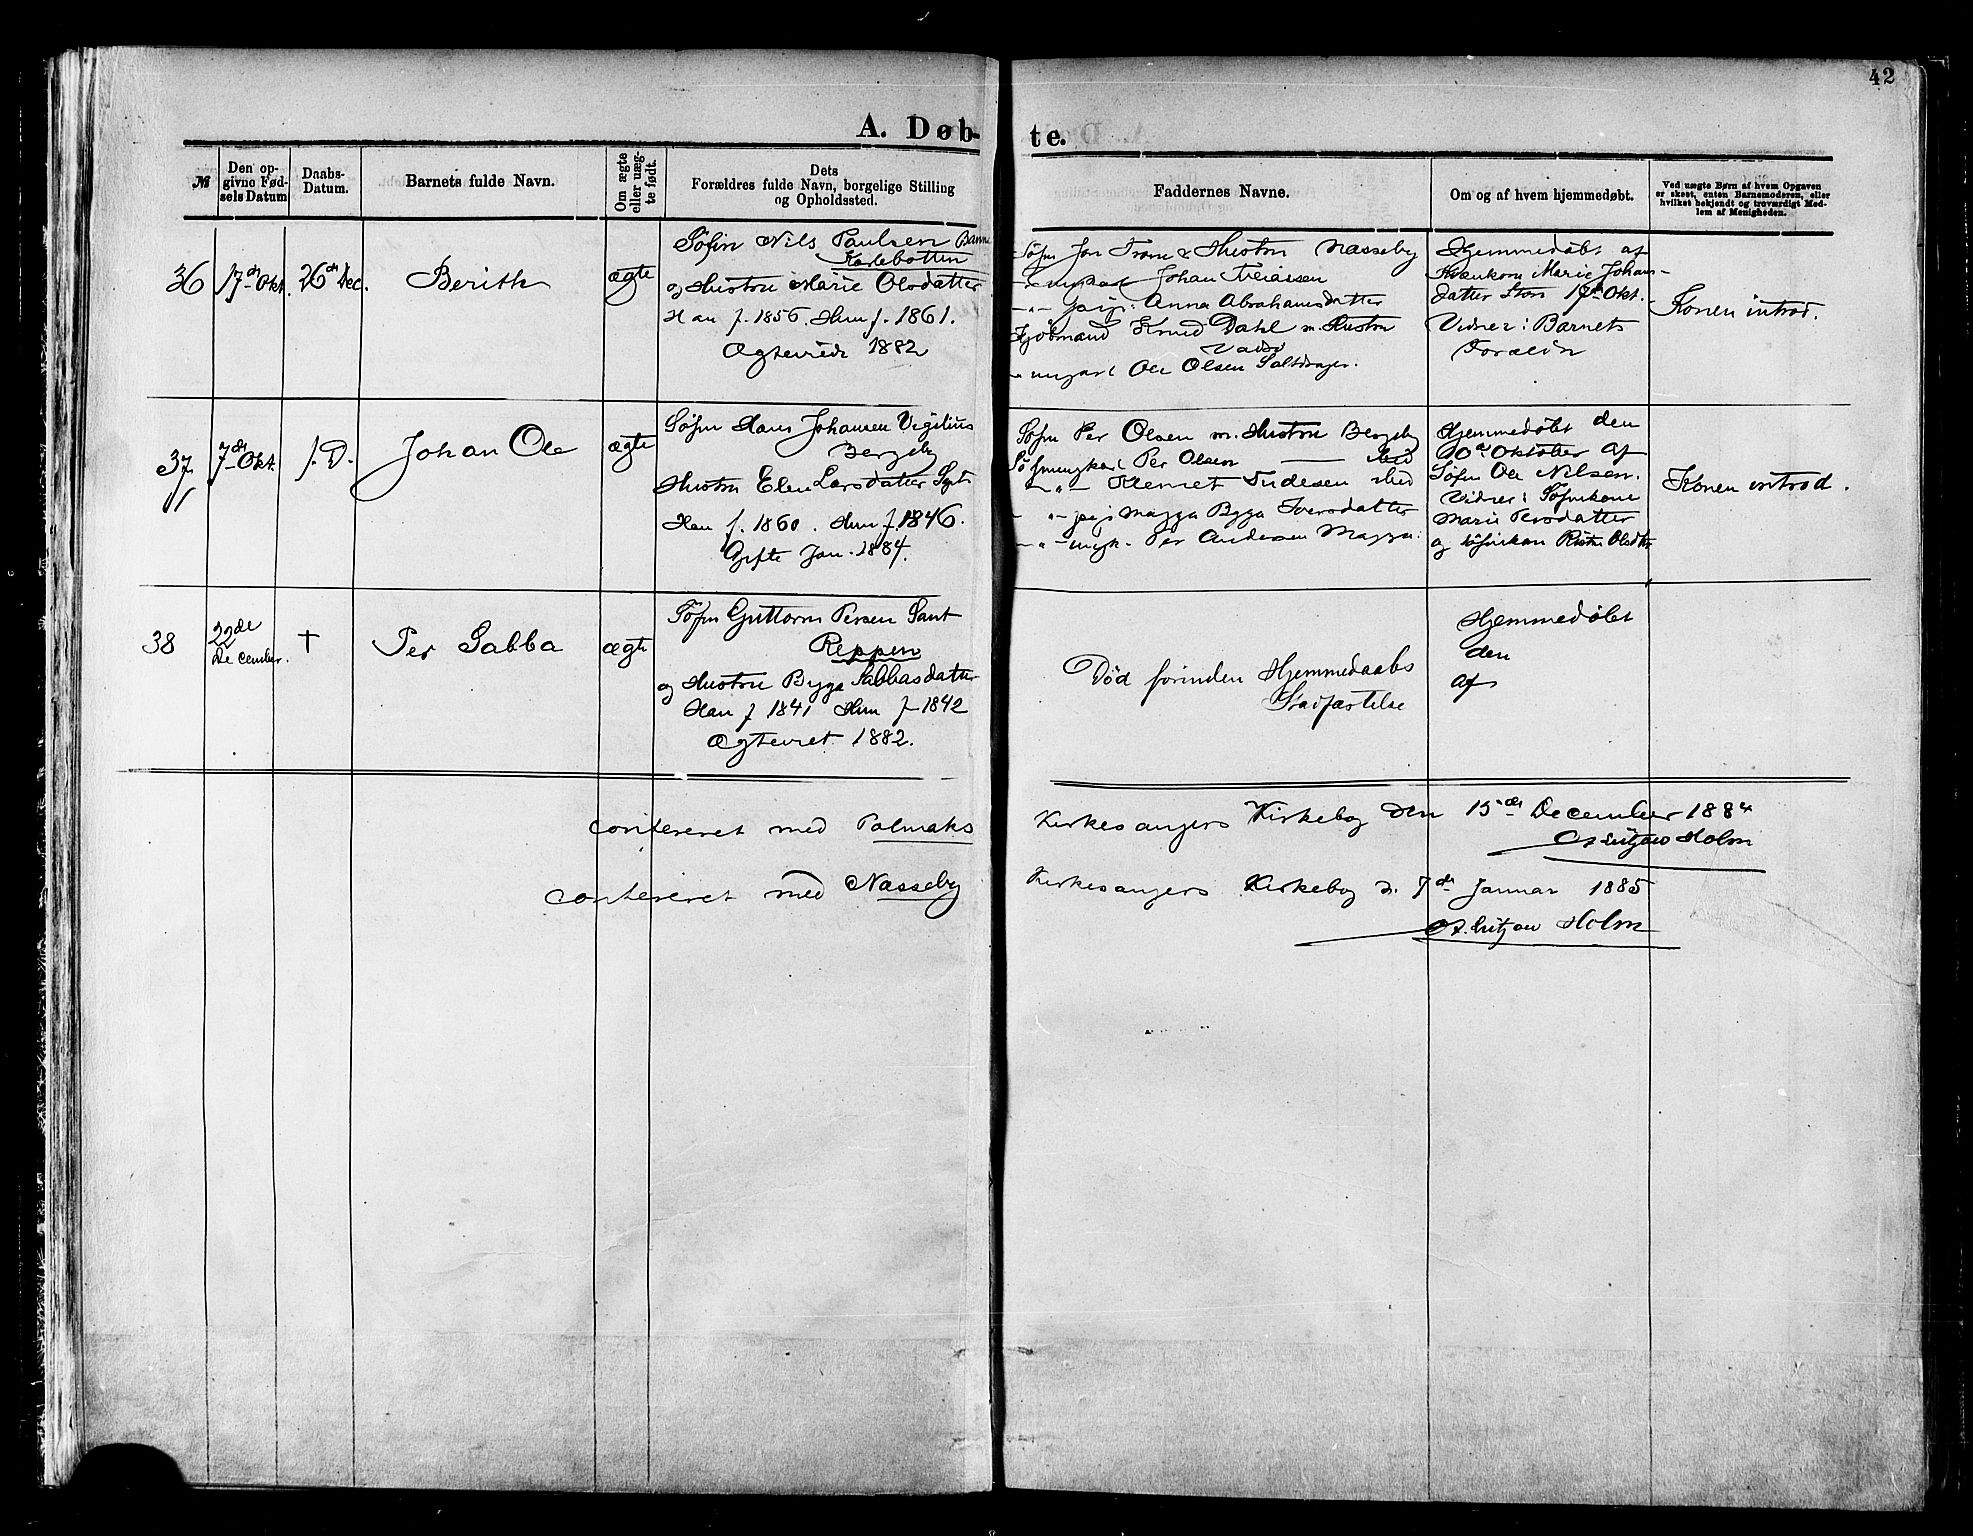 42
A. Døb-
te.
№
Den op-
givne Fød-
sels Datum
Daabs-
Datum.
Barnets fulde Navn.
Om ægte
eller uæg-
te født.
Dets
Forældres fulde Navn, borgelige Stilling
og Opholdssted.
Faddernes Navne.
Om og af hvem hjemmedøbt.
Ved uægte Børn af hvem Opgaven
er skeet, enten Barnemoderen, eller
hvilket bekjendt og troværdigt Med-
lem af Menigheden.
36
17de Okt.
26de Dec.
Berith
ægte
Søfin Nils Paulsen
Karlebotten
og Hustru Marie Olsdatter
Han f. 1856. Hun f. 1861.
Ægteviede 1882
Søfin Jon Trane & Hustru Næsseby
Johan
pige: Anna Abrahamsdatter
Kjøbmand Knud Dahl m. Hustru
Vadsø
ungkarl Ole Olsen
Hjemmedøbt af
Marie Johans-
datter 17de Okt.
Vidner: Barnets
Forældre
Konen introd.
37
7de Okt.
s. D.
Johan Ole
ægte
Søfin Hans Johansen Vigilius
Bergeby
Hustru Elen Larsdatter
Han f. 1860. Hun f. 1846.
Gifte Jan. 1884.
Søfin Per Olsen m. Hustru Bergeby
Søfinungkarl Per Olsen
Klemet
pige Magga Bygga Iversdatter
ungk. Per Andersen Magga.
Hjemmedøbt den
10de Oktober af
Søfin Ole Nilsen.
Vidner: Søfinkone
Marie Persdatter
og søfinkon
Konen introd.
38
22de
December.
†
Per Sabba
ægte
Søfin Guttorm Persen
Reppen
og Hustru Byga Sabbasdatter
Han f 1841 Hun f 1842
Ægteviet 1882.
Død forinden Hjemmedaabs
Stadfæstelse
Hjemmedøbt
den
af
confereret med Polmaks
Kirkesangers Kirkebog den 15de December 1884
Holm
confereret med Næsseby
Kirkesangers Kirkebog d. 7de Januar 1885
Holm